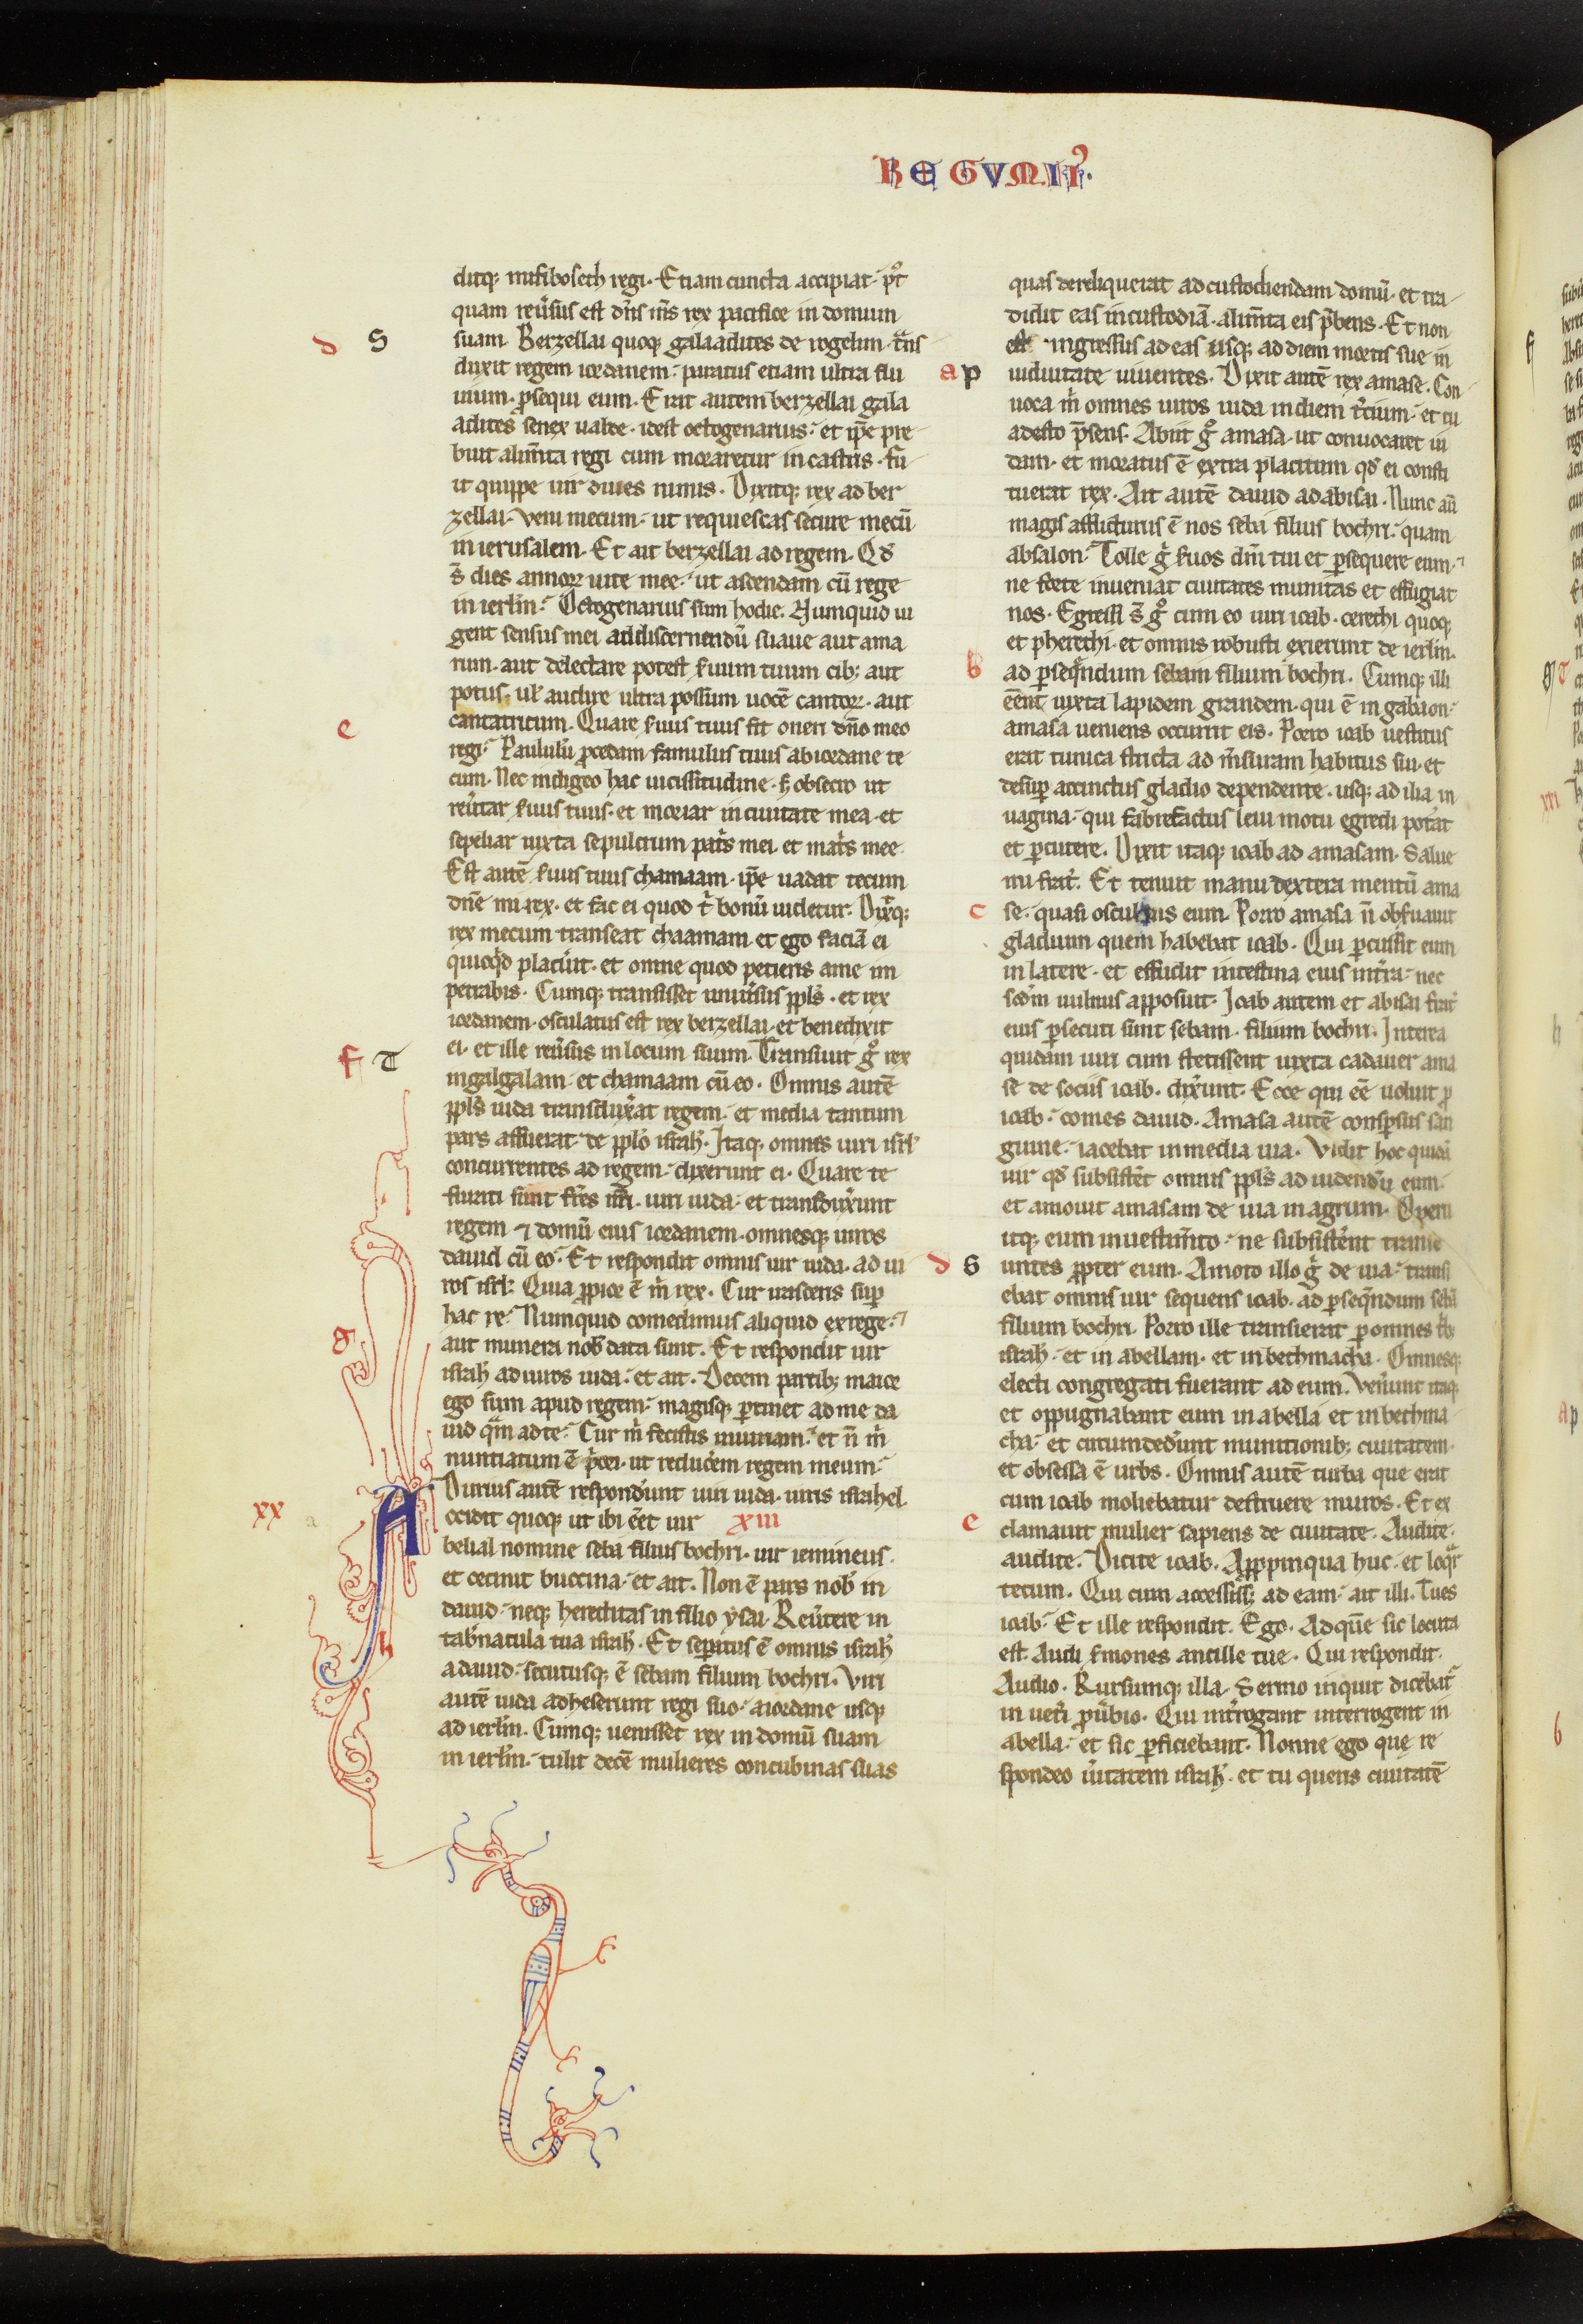 REGUM.II.
ditq; mifiboseth regi. Etiam cuncta accipiat. pꝰt
quam reu̾sus est dn̄s m̄s rex pacifice in domum
suam. Berzellai quoq; galaadites de rogelim. t̾ns
duxit regem iordanem. paratus etiam ultra flu
uium. ꝓsequi eum. Erat autem berzellai gala
adites senex ualde. idest octogenarius. et ip̄e pre
buit alim̄ta regi cum moraretur in castris. fu
it quippe uir diues nimis. Dixitq; rex ad ber
zellai. Veni mecum. ut requiescas secure mecū
in ierusalem. Et ait berzellai ad regem. Qd̾
s̄ dies annoꝝ uite mee. ut ascendam cū rege
in ierl̄m. Octogenarius sum hodie. Numquid ui
gent sensus mei ad discernendū suaue aut ama
rum. aut delectare potest s̾uum tuum cib; aut
potus. ul̾ audire ultra possum uocē cantoꝝ. aut
cantatricum. Quare s̾uus tuus sit oneri dn̄o meo
regi. Paululū ꝓcedam famulus tuus ab iordane te
cum. Nec indigeo hac uicissitudine. s; obsecro ut
reu̾tar s̾uus tuus. et moriar in ciuitate mea. et
sepeliar iuxta sepulcrum pat̾s mei. et mat̾s mee.
Est autē s̾uus tuus chamaam. ip̄e uadat tecum
dn̄e mi rex. et fac ei quod t̾ bonū uidetur. Dix̾q;
rex mecum transeat chaamam. et ego faciā ei
quicq̾d placu̾it. et omne quod petieris a me im
petrabis. Cumq; transisset uniu̾sus ppl̄s. et rex
iordanem. osculatus est rex berzellai. et benedixit
ei. et ille reu̾sus in locum suum. Transiuit g̾ rex
in galgalam. et chamaam cū eo. Omnis autē
ppl̄s iuda transdux̾at regem. et media tantum
pars affuerat de ppl̄o israh̾l. Itaq; omnes uiri isrl̾
concurrentes ad regem. dixerunt ei. Quare te
furati sunt fr̄es nr̄i. uiri iuda. et transdux̾unt
regem ⁊ domū eius iordanem. omnesq; uiros
dauid cū eo. Et respondit omnis uir iuda. ad ui
ros isrl̾. Quia ꝓpior ē m̾ rex. Cur irasceris sup̄
hac re. Numquid comedimus aliquid ex rege.
aut munera nob̾ data sunt. Et respondit uir
israh̾l ad uiros iuda. et ait. Decem partib; maior
ego sum apud regem. magisq; ꝑtinet ad me da
uid q̄m ad te. Cur m̾ fecistis iniuriam. et n̄ m̾
nuntiatum ē p̾ori. ut reduc̾em regem meum.
Durius autē respond̾unt uiri iuda. uiris israhel.
xx Accidit quoq; ut ibi ēet uir xiii
belial nomine seba filius bochri. uir iemineus.
et cecinit buccina. et ait. Non ē pars nob̾ in
dauid. neq; hereditas in filio ysai. Reu̾tere in
tab̾nacula tua israh̾l. Et sep̄atus ē omnis israh̾l
a dauid. secutusq; ē sebam filium bochri. Viri
autē iuda adheserunt regi suo. a iordane usq;
ad ierl̄m. Cumq; uenisset rex in domū suam
in ierl̄m. tulit decē mulieres concubinas suas
quas dereliquerat ad custodiendam domū. et tra
didit eas in custodiā. alim̄ta eis p̄bens. Et non
est ingressus ad eas usq; ad diem mortis sue in
uiduitate uiuentes. Dixit autē rex amase. Con
uoca m̾ omnes uiros iuda in diem t̾cium. et tu
adesto p̄sens. Abiit g̾ amasa. ut conuocaret iu
dam. et moratus ē extra placitum qd̾ ei consti
tuerat rex. Ait autē dauid ad abisai. Nunc aū
magis afflicturus ē nos seba filius bochri. quam
absalon. Tolle g̾ s̾uos dn̄i tui et ꝑsequere eum.
ne forte inueniat ciuitates munitas et effugiat
nos. Egressi s̄ g̾ cum eo uiri ioab. cerethi quoq;
et pherethi. et omnis robusti exierunt de ierl̄m.
ad ꝑseq̄ndum sebam filium bochri. Cumq; illi
ēent iuxta lapidem grandem. qui ē in gabaon.
amasa ueniens occurrit eis. Porro ioab uestitus
erat tunica stricta ad m̄suram habitus sui. et
desup̄ accinctus gladio dependente. usq; ad ilia in
uagina. qui fabrefactus leui motu egredi pot̾at
et ꝑcutere. Dixit itaq; ioab ad amasam. Salue
mi frat̾. Et tenuit manu dextera mentū ama
se. quasi osculans eum. Porro amasa n̄ obs̾uauit
gladium quem habebat ioab. Qui ꝑcussit eum
in latere. et effudit intestina eius int̾ra. nec
scd̄m uulnus apposuit. Ioab autem et abisai frat̾
eius ꝑsecuti sunt sebam. filium bochri. Interea
quidam uiri cum stetissent iuxta cadauer ama
se de sociis ioab. dix̾unt. Ecce qui ēe uoluit ꝓ
ioab. comes dauid. Amasa autē consp̄sus san
guine. iacebat in media uia. Vidit hoc quidā
uir qd̾ subsist̾et omnis ppl̄s ad uidendū eum.
et amouit amasam de uia in agrum. Operu
itq; eum in uestim̄to. ne subsist̾ent transe
untes ꝓpter eum. Amoto illo g̾ de uia. transi
ebat omnis uir sequens ioab. ad ꝑseq̄ndum sebā
filium bochri. Porro ille transierat ꝑ omnes t̾b;
israh̾l. et in abellam. et in bethmacha. Omnesq;
electi congregati fuerant ad eum. Ven̾unt itaq;
et oppugnabant eum in abella et in bethma
cha. et circumded̾unt munitionib; ciuitatem.
et obsessa ē urbs. Omnis autē turba que erat
cum ioab moliebatur destruere muros. Et ex
clamauit mulier sapiens de ciuitate. Audite.
audite. Dicite ioab. Appropinqua huc. et loq̾r
tecum. Qui cum accessiss; ad eam. ait illi. Tu es
ioab. Et ille respondit. Ego. Ad quē sic locuta
est. Audi s̾mones ancille tue. Qui respondit.
Audio. Rursumq; illa. Sermo inquit dicebat̾
in uet̾i ꝓu̾bio. Qui int̾rogant interrogent in
abella. et sic ꝑficiebant. Nonne ego que re
spondeo u̾itatem israh̾l. et tu queris ciuitatē